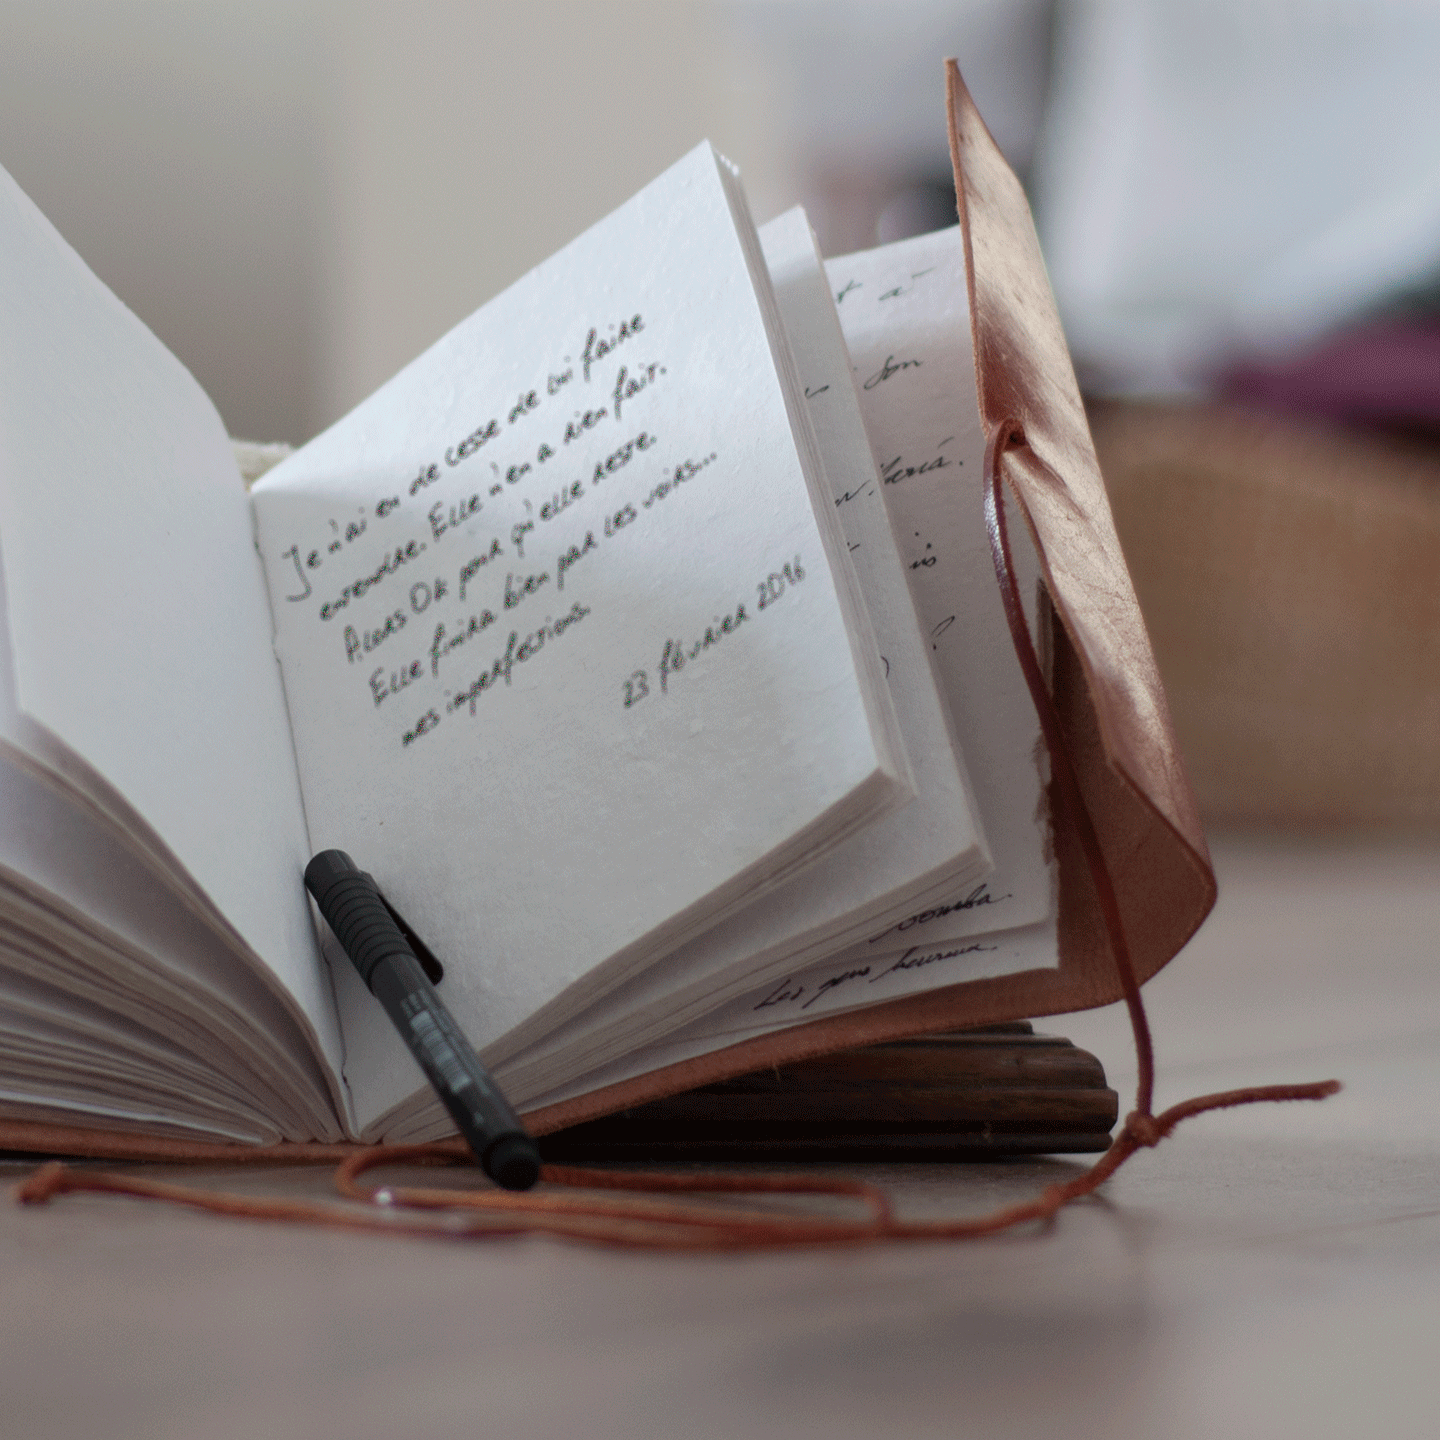 Je n'ai eu de cesse de lui faire
entendre. Elle n'en a rien fait.
Alors OK pour qu'elle reste.
Elle finira bien par les voirs...
mes imperfections.
23 février 2016
a
son
is
tomba.
Les gens heureux.